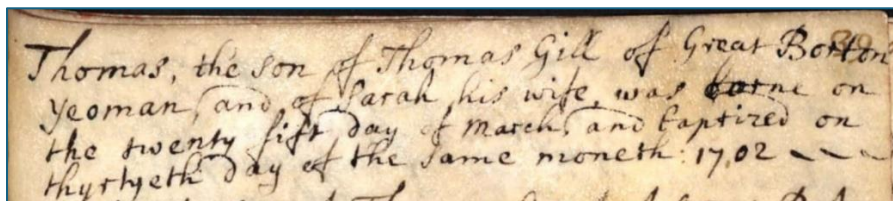 Thomas, the son of Thomas Gill of Great Borton
yeoman, and of Sarah his wife, was borne on
the twenty fift day of March, and baptized on
thyrtyeth day of the same moneth: 1702